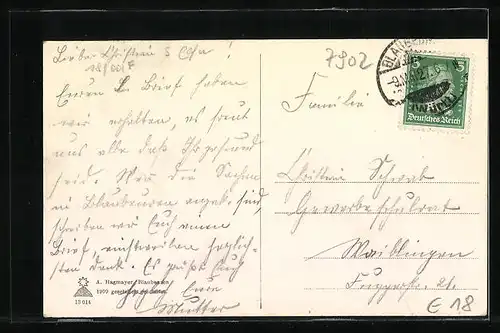 Liebe Christian & Cha!
Euren l. Brief haben
wir erhalten, es freut
uns alle daß Ihr gesund
seid. Wie die Sachen
in Blaubeuren angek. sind,
schreiben wir Euch einen
Brief, einstweilen herzlich-
sten Dank. Es grüßt Euch
Eure
Mutter
A. Hagmayer, Blaubeuren
1909 gesetzlich geschützt
18 014
7902
Deutsches Reich
5
Familie
Christian Schwab
Gewerbeschulrat
Waiblingen
Fuggerstr. 21.
€ 18